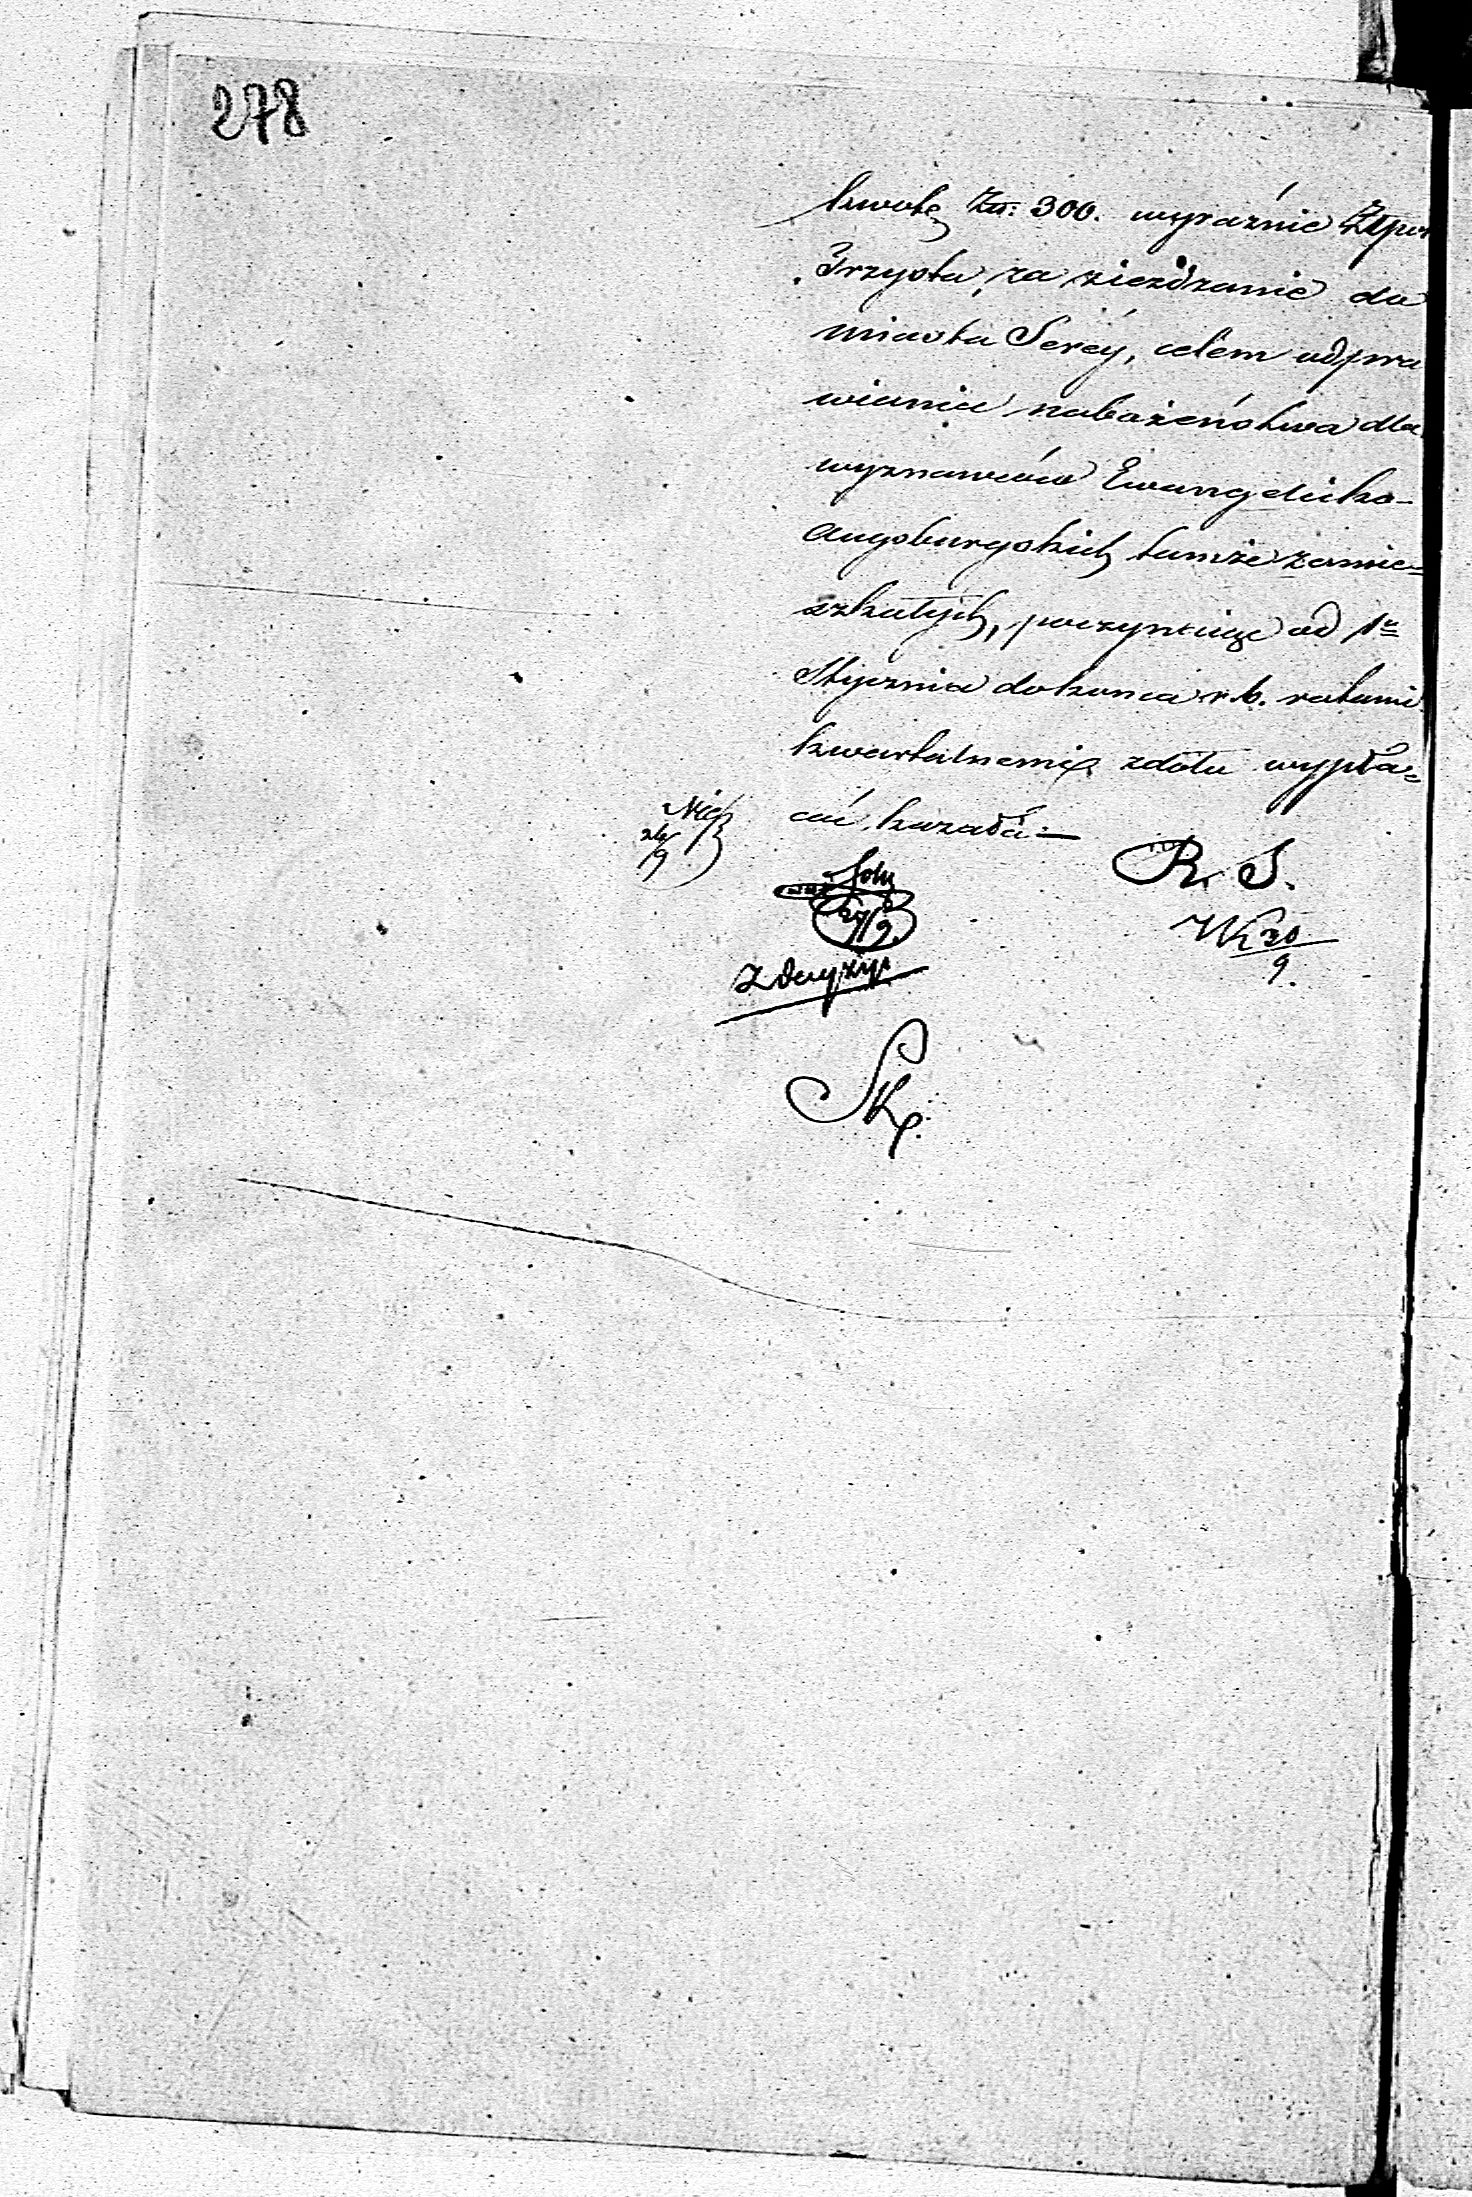 278
kwotę Złł: 300. wyraźnie Złpol
Trzysta, za zieżdzanie do
miasta Serey, celem odpra
wiania nabożeństwa dla
wyznawców Ewangelicko-
Augsburgskich tamże zamie-
szkałych, poczynając od 1go
Stycznia do końca r. b. ratami
kwartalnemi z dołu wypła-
cać kazała.—
R. S.